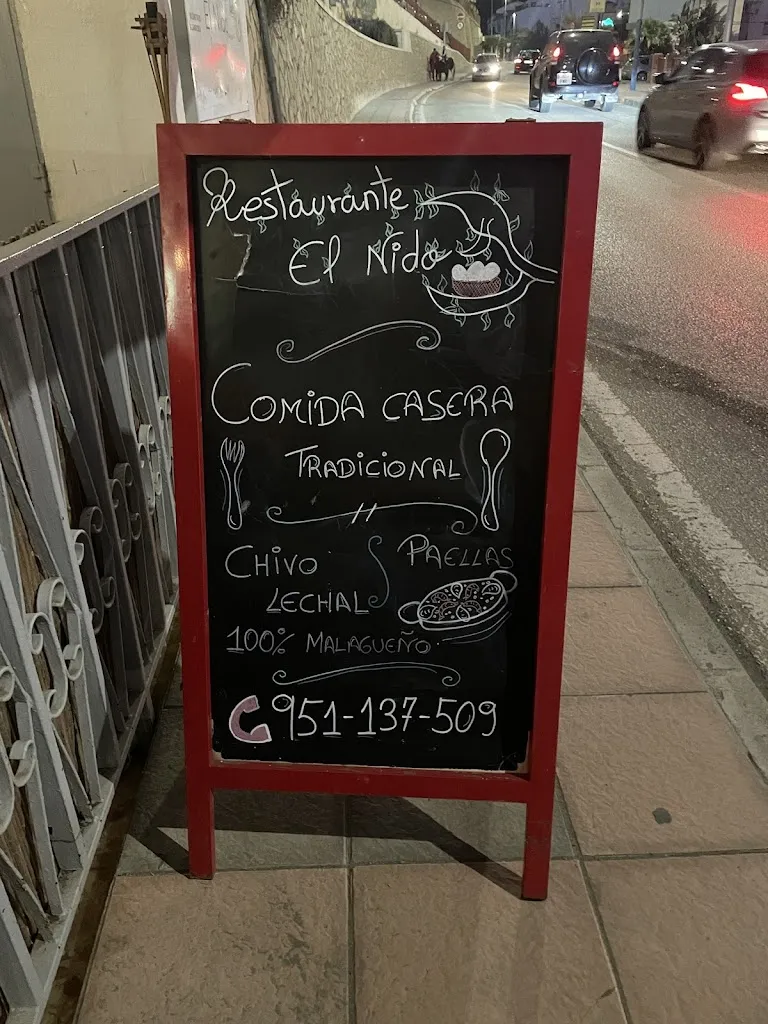 Restaurante
El Nido
COMIDA CASERA
TRADICIONAL
CHIVO
LECHAL
PAELLAS
100% MALAGUEÑO
951-137-509